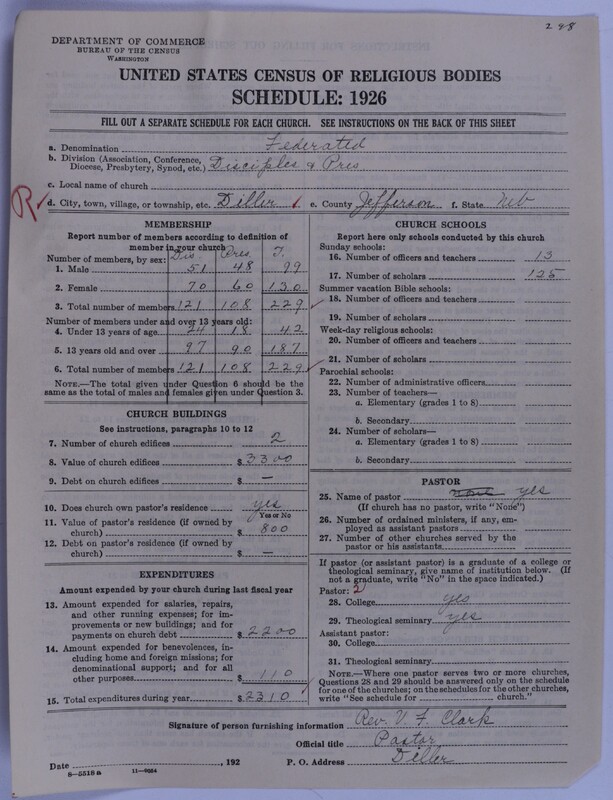 298
DEPARTMENT OF COMMERCE
BUREAU OF THE CENSUS
WASHINGTON
UNITED STATES CENSUS OF RELIGIOUS BODIES
SCHEDULE: 1926
FILL OUT A SEPARATE SCHEDULE FOR EACH CHURCH. SEE INSTRUCTIONS ON THE BACK OF THIS SHEET
a. Denomination Federated
b. Division (Association, Conference, Diocese, Presbytery, Synod, etc.) Disciples & Pres
c. Local name of church
R d. City, town, village, or township, etc. Diller e. County Jefferson f. State Neb
MEMBERSHIP
Report number of members according to definition of
member in your church
Dis. Pres. T.
Number of members, by sex:
1. Male 51 48 99
2. Female 70 60 130
3. Total number of members 121 108 229
Number of members under and over 13 years old:
4. Under 13 years of age 24 18 42
5. 13 years old and over 97 90 187
6. Total number of members 121 108 229
NOTE.—The total given under Question 6 should be the
same as the total of males and females given under Question 3.
CHURCH BUILDINGS
See instructions, paragraphs 10 to 12
7. Number of church edifices 2
8. Value of church edifices $ 3300
9. Debt on church edifices $ —
10. Does church own pastor's residence yes
Yes or No
11. Value of pastor's residence (if owned by
church) $ 800
12. Debt on pastor's residence (if owned by
church) $ —
EXPENDITURES
Amount expended by your church during last fiscal year
13. Amount expended for salaries, repairs,
and other running expenses; for im-
provements or new buildings; and for
payments on church debt $ 2200
14. Amount expended for benevolences,
including home and foreign missions; for
denominational support; and for all
other purposes $ 110
15. Total expenditures during year $ 2310
CHURCH SCHOOLS
Report here only schools conducted by this church
Sunday schools:
16. Number of officers and teachers 13
17. Number of scholars 125
Summer vacation Bible schools:
18. Number of officers and teachers
19. Number of scholars
Week-day religious schools:
20. Number of officers and teachers
21. Number of scholars
Parochial schools:
22. Number of administrative officers
23. Number of teachers—
a. Elementary (grades 1 to 8)
b. Secondary
24. Number of scholars—
a. Elementary (grades 1 to 8)
b. Secondary
PASTOR
25. Name of pastor yes
(If church has no pastor, write "None")
26. Number of ordained ministers, if any, em-
ployed as assistant pastors
27. Number of other churches served by the
pastor or his assistants
If pastor (or assistant pastor) is a graduate of a college or
theological seminary, give name of institution below. (If
not a graduate, write "No" in the space indicated.)
Pastor: 2
28. College yes
29. Theological seminary yes
Assistant pastor:
30. College
31. Theological seminary
NOTE.—Where one pastor serves two or more churches,
Questions 28 and 29 should be answered only on the schedule
for one of the churches; on the schedules for the other churches,
write "See schedule for church."
Signature of person furnishing information Rev. V. F. Clark
Official title Pastor
Date , 192 P. O. Address Diller
8—5518 a 11—9684